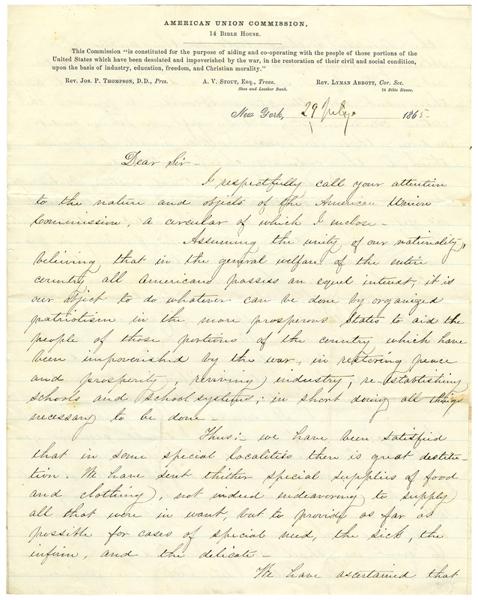 AMERICAN UNION COMMISSION,
14 BIBLE HOUSE.
This Commission "is constituted for the purpose of aiding and co-operating with the people of those portions of the
United States which have been desolated and impoverished by the war, in the restoration of their civil and social condition,
upon the basis of industry, education, freedom, and Christian morality."
REV. JOS. P. THOMPSON, D.D., Pres. A. V. STOUT, ESQ., Treas. REV. LYMAN ABBOTT, Cor. Sec.
Shoe and Leather Bank. 14 Bible House.
New York, 29 July 1865
Dear Sir -
I respectfully call your attention
to the nature and objects of the American Union
Commission, a circular of which I inclose -
Assuming the unity of our nationality,
believing that in the general welfare of the entire
country all Americans possess an equal interest, it is
our object to do whatever can be done by organized
patriotism in the more prosperous States to aid the
people of those portions of the country which have
been impoverished by the war, in restoring peace
and prosperity, reviving industry, re-establishing
schools and school systems; in short doing all things
necessary to be done -
Thus: - we have been satisfied
that in some special localities there is great destitu-
tion. We have sent thither special supplies of food
and clothing, not indeed endeavoring to supply
all that were in want, but to provide as far as
possible for cases of special need, the sick, the
infirm, and the delicate -
We have ascertained that